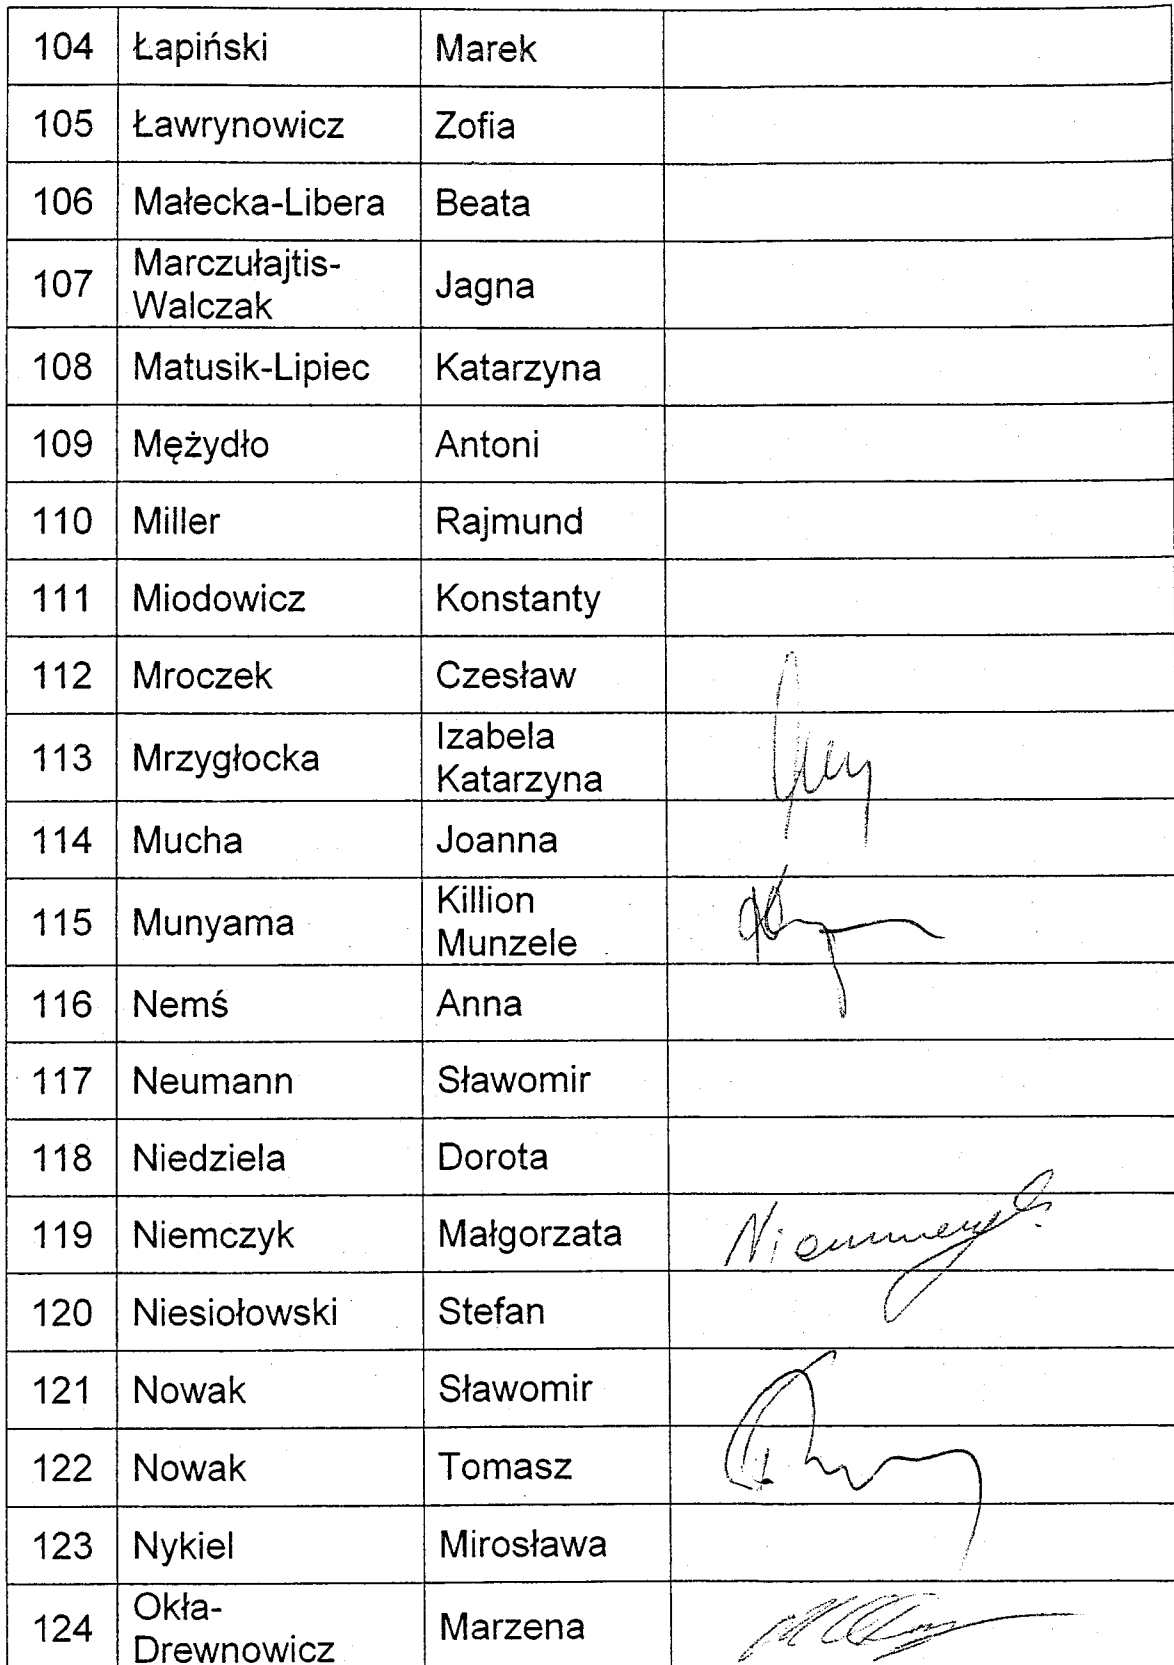 104 Łapiński Marek
105 Ławrynowicz Zofia
106 Małecka-Libera Beata
107 Marczułajtis-
Walczak Jagna
108 Matusik-Lipiec Katarzyna
109 Mężydło Antoni
110 Miller Rajmund
111 Miodowicz Konstanty
112 Mroczek Czesław
113 Mrzygłocka Izabela
Katarzyna
114 Mucha Joanna
115 Munyama Killion
Munzele
116 Nemś Anna
117 Neumann Sławomir
118 Niedziela Dorota
119 Niemczyk Małgorzata
120 Niesiołowski Stefan
121 Nowak Sławomir
122 Nowak Tomasz
123 Nykiel Mirosława
124 Okła-
Drewnowicz Marzena